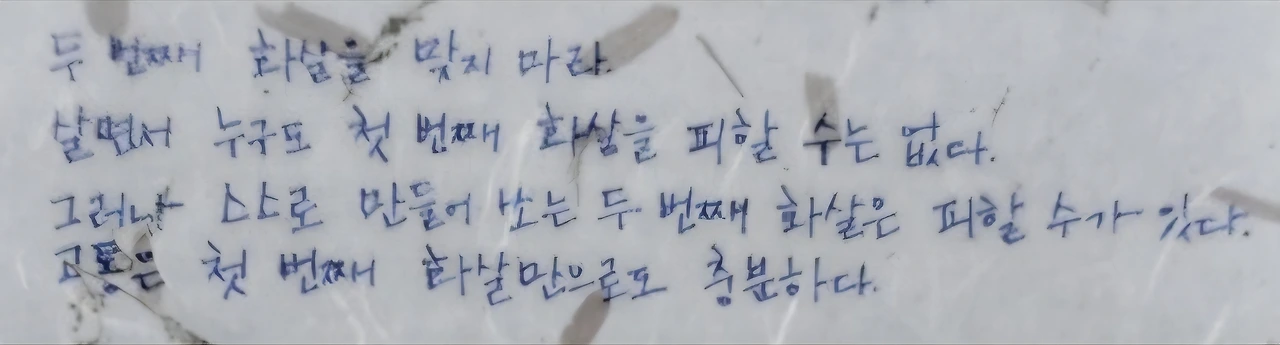 두 번째 화살을 맞지 마라.
살면서 누구도 첫 번째 화살을 피할 수는 없다.
그러나 스스로 만들어 쏘는 두 번째 화살은 피할 수가 있다.
고통은 첫 번째 화살만으로도 충분하다.